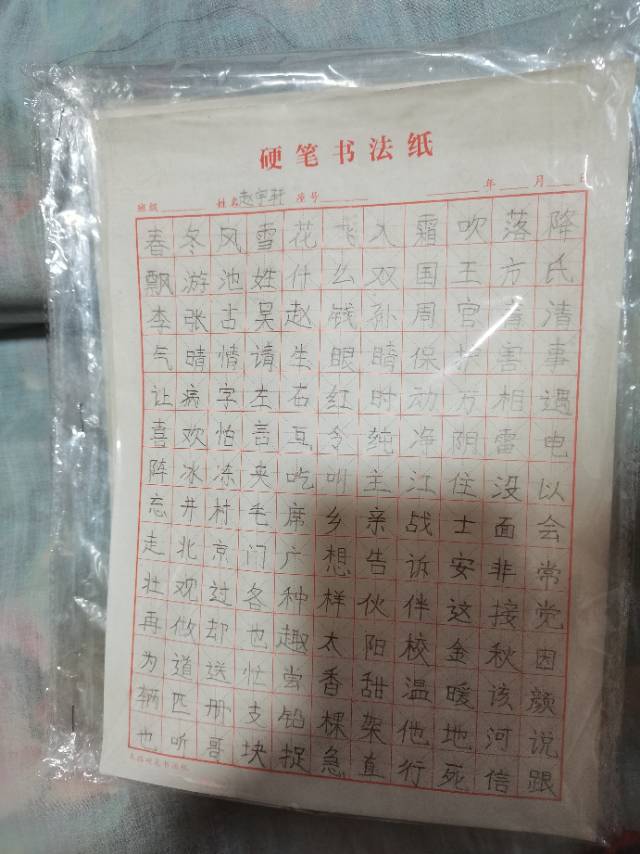 硬笔书法纸
班级 姓名赵宇轩 座号 年 月 日
春冬风雪花飞入霜吹落降
飘游池姓什么双国王方氏
李张古吴赵钱孙周官青清
气晴情请生眼睛保护害事
让病字左右红时动万相遇
喜欢怕言互令纯净阴雷电
阵冰冻央吃叫主江住没以
忘井村毛席乡亲战士面会
走北京门广想告诉安非常
壮观过各种样伙伴这接党
再做却也趣太阳校金秋因
为道送忙尝香甜温暖该颜
辆匹册支铅棵架他地河说
也听哥块捉急直行死信跟